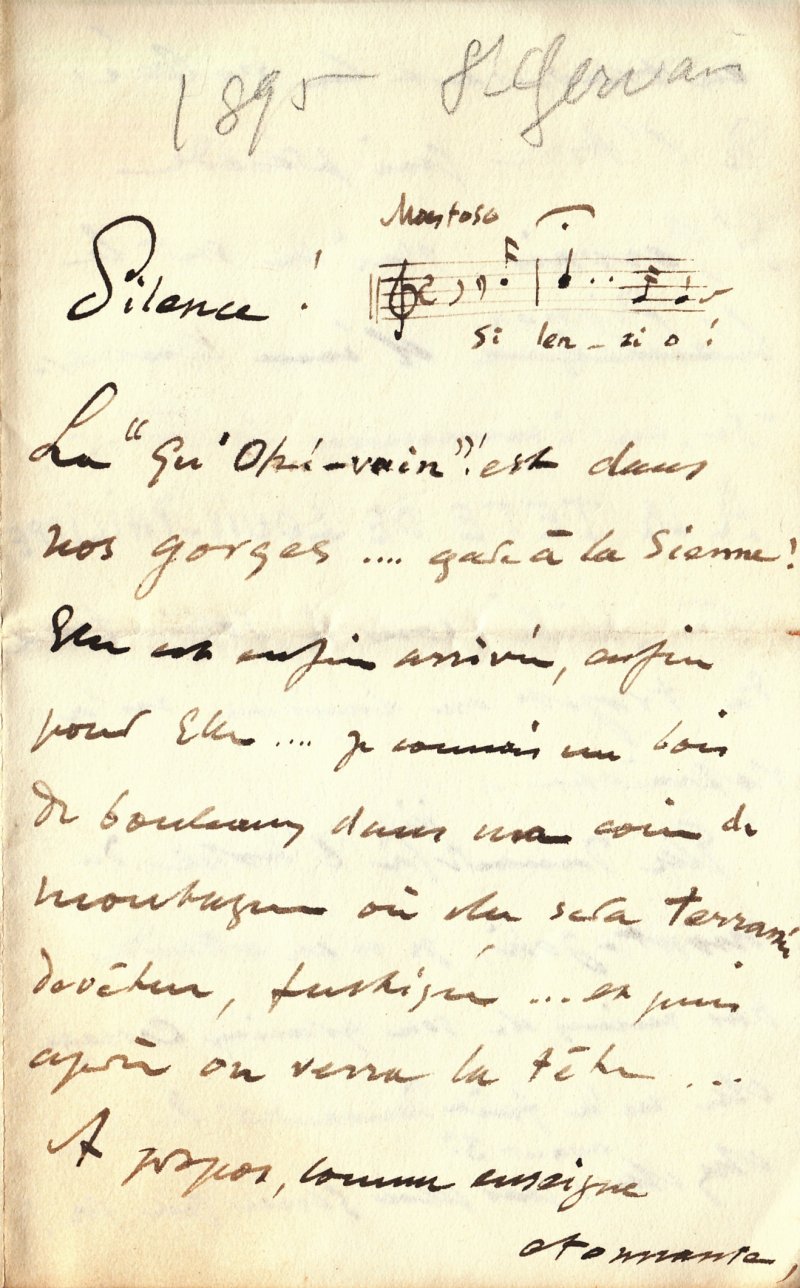 1895 St Gervais
Silence !
Maestoso
Si len - zi o !
La "Qu'Ohé-vain"! est dans
nos gorges .... gare à la Sienne !
Elle est enfin arrivée, enfin
pour Elle .... je connais un bois
de bouleaux dans un coin de
montagne où elle sera terrassée
devêtue, fustigée ... et puis
après on verra la tête ...
A propos, comme enseigne
étonnante,